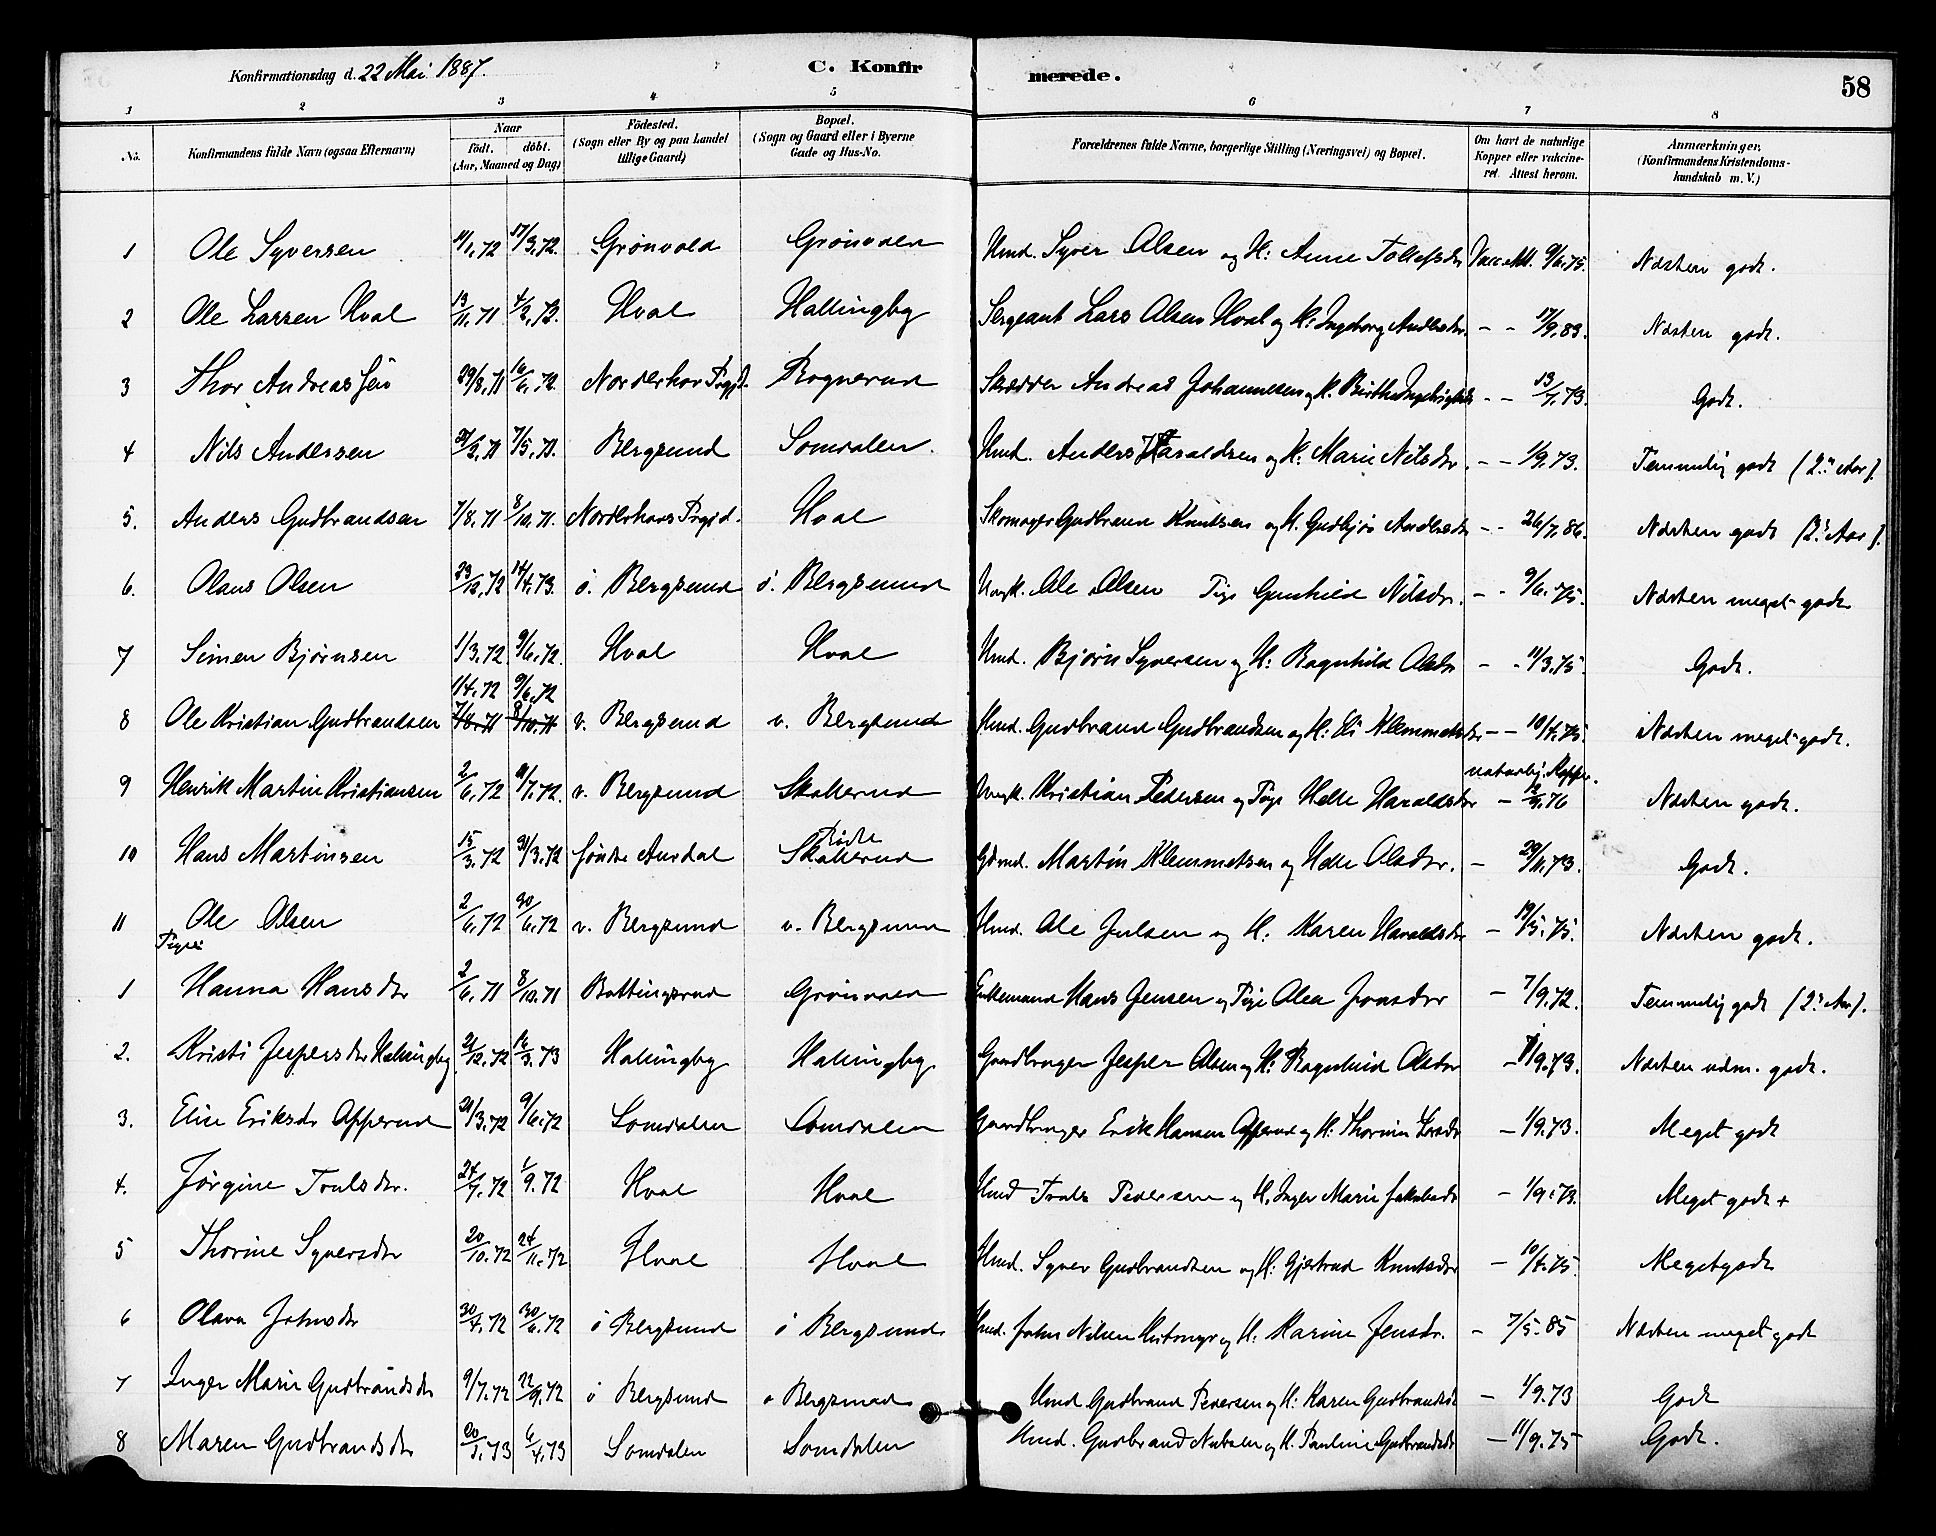 Konfirmationsdag d. 22 Mai 1887.
C. Konfirmerede.
58
1 2 3 4 5 6 7 8
No. Konfirmandens fulde Navn (ogsaa Efternavn) Naar födt. döbt. (Aar, Maaned og Dag) Födested. (Sogn eller By og paa Landet tillige Gaard) Bopæl. (Sogn og Gaard eller i Byerne Gade og Hus-No. Forældrenes fulde Navne, borgerlige Stilling (Næringsvei) og Bopæl. Om havt de naturlige Kopper eller vakcineret. Attest herom. Anmærkninger. (Konfirmandens Kristendomskundskab m. V.)
1 Ole Syversen 11/1.72 17/3.72. Grönvold Grönvolen Hmd. Syver Olsen og H: Anne Tollefsdr Vacc. Att. 9/6.75. Næsten godt.
2 Ole Larsen Hval 13/11.71 4/2.72. Hval Hallingby Sergeant Lars Olsen Hval og H: Ingeborg Andersdr. - - 17/9.83. Næsten godt.
3 Thor Andreassen 29/8.71 16/6.72. Norderhov Prgjd. Rognerud Skrædder Andreas Johannesen og H. Birthe - - 13/7.73. Godt.
4 Nils Andersen /2.71 7/5.71. Bergsund Somdalen. Hmd. Anders Haraldsen og H: Marie Nilsdr. - - 1/9.73. Temmelig godt (2det Aar).
5. Anders Gudbrandsen 7/8.71 8/10.71. Norderhovs Prgjd. Hval Skomager Gudbrand Knutsen og H. Gudbjør Andersdr - - 26/7.86. Næsten godt (2' Aar).
6. Olaus Olsen 23/12.72 14/4.73. ö. Bergsund ö. Bergsund Ungk. Ole Olsen Pige Gunhild Nilsdr. - - 9/6.75. Næsten meget godt
7 Simen Bjørnsen 1/3.72 9/6.72. Hval Hval Hmd. Bjørn Syversen og H: Ragnhild Olsdr - - 11/3.75 Godt.
1/4.72 9/6.72
8 Ole Kristian Gudbrandsen 7/8.71 8/10.71 v. Bergsund v. Bergsund Hmd. Gudbrand Gudbrandsen og H: Eli Klemmetsdr - - 10/4.75 Næsten meget godt.
naturlig. Kopper.
9 Henrik Martin Kristiansen 2/6.72 /7.72. v. Bergsund Skollerud Ungk. Kristian Pedersen og Pige Helle Haraldsdr - /9.76 Næsten godt.
10 Hans Martinsen 15/3.72 31/3.72 Söndre Aurdal Skollerud Gbrmd. Martin Klemmetsen og Helle Olsdr. - 29/11.73. Godt.
11 Ole Olsen 2/6.72 30/6.72 v. Bergsund v. Bergsund Hmd. Ole Julsen og H: Karen Haraldsdr - 19/5.75. Næsten godt.
Piger
1 Hanna Hansdr 2/6.71 8/10.71 Bottingsrud Grönvolen Enkemand Hans Jensen og Pige Olea Jonsdr - 7/9.72. Temmelig godt (2' Aar).
2. Kristi Jespersdr Hallingby 21/12.72 16/3.73 Hallingby Hallingby Gaardbruger Jesper Olsen og H: Ragnhild Olsdr - 1/9.73. Næsten udm. godt.
3. Elise Eriksdr Opperud 21/3.72 9/6.72 Somdalen Somdalen Gaardbruger Erik Hansen Opperud og H. Thorine Larsdr - 1/9.73. Meget godt
4. Jørgine Trulsdr. 24/7.72 1/9.72 Hval Hval Hmd Truls Pedersen og H. Inger Marie Jakobsdr - 1/9.73. Meget godt
5 Thorine Syversdr 20/10.72 24/11.72 Hval Hval Hmd. Syver Gudbrandsen og H: Gjertrud Knutsdr - 10/4.75. Meget godt
6 Olava Johnsdr 30/4.72 30/6.72 ö Bergsund ö Bergsund Hmd. John Nilsen og H: Karine Jensdr. - 7/5.85 Næsten meget godt
7 Inger Marie Gudbrandsdr 9/7.72 22/9.72 ö Bergsund ö Bergsund Hmd Gudbrand Pedersen og H: Karen Gudbrandsdr - 1/9.73 Godt
8 Maren Gudbrandsdr 20/1.73 6/4.73 Somdalen Somdalen Hmd. Gudbrand Nubsen og H. Pauline Gudbrandsdr - 11/9.75 Godt.